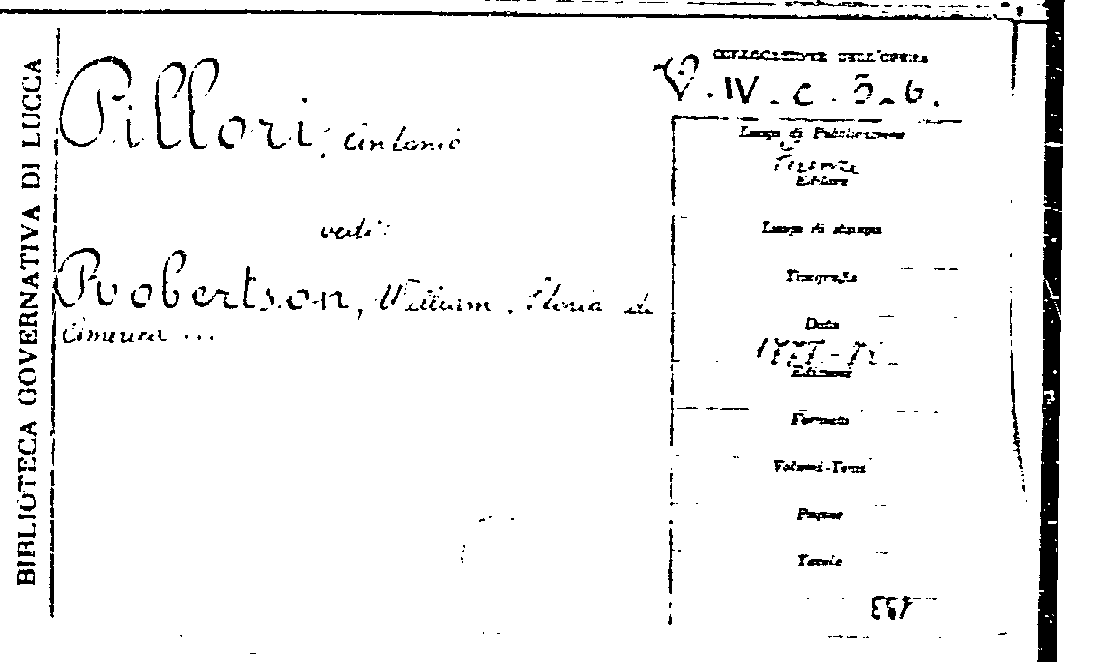 BIBLIOTECA GOVERNATIVA DI LUCCA
Pillori, Antonio
vedi:
Robertson, William. Storia di
America ...
COLLOCAZIONE DELL'OPERA
V. IV. c. 5. 6.
Luogo di Pubblicazione
Firenze
Editore
Luogo di stampa
Tipografia
Data
Edizione
Formato
Volumi-Tomi
Pagine
Tavole